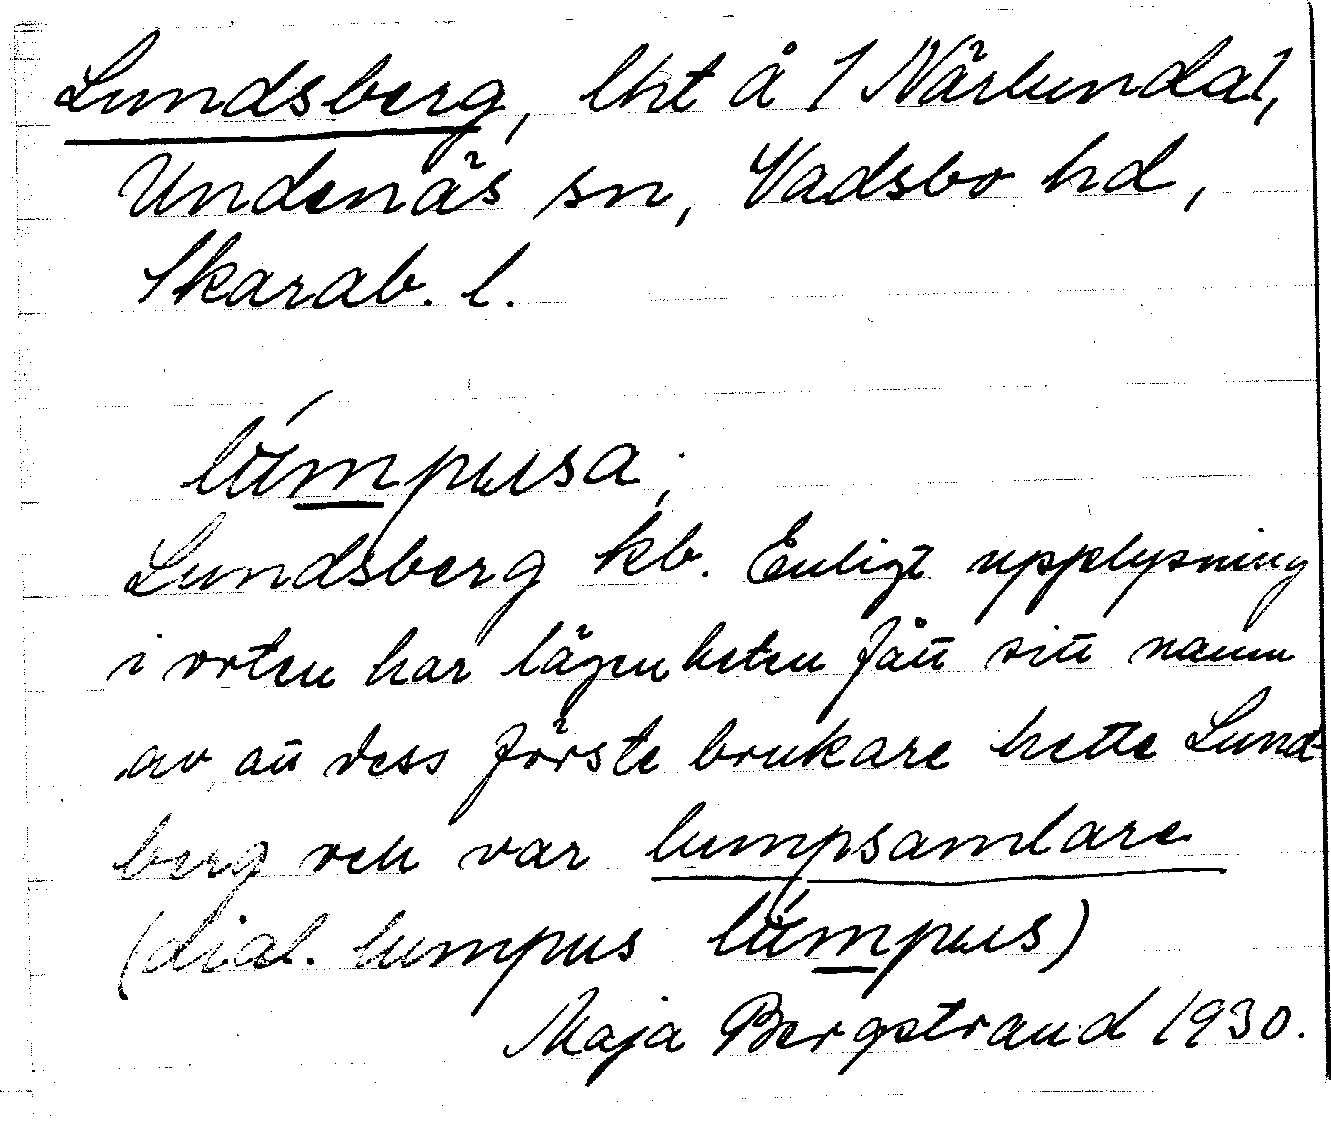 Lundsberg, lht å 1 Närlunda1,
Undenäs sn, Vadsbo hd,
Skarab. l.
lu̇́mpusa;
Lundsberg kb. Enligt upplysning
i orten har lägenheten fått sitt namn
av att dess förste brukare hette Lund-
berg och var lumpsamlare
(dial. lumpus lu̇́mpus)
Maja Bergstrand 1930.